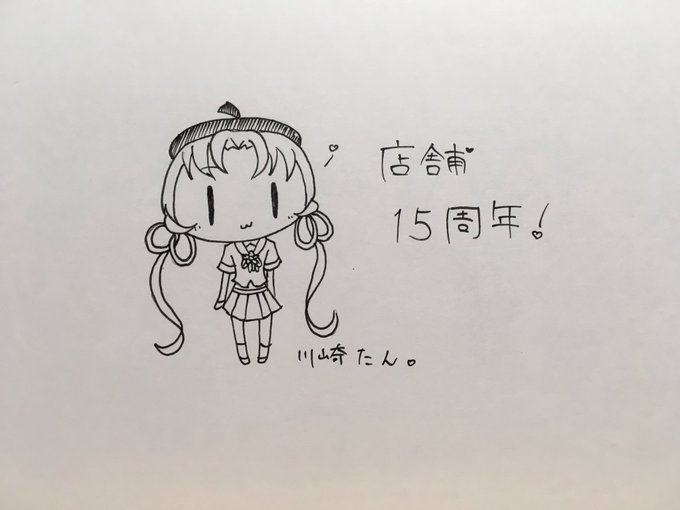 店舗
15周年!
川崎たん。